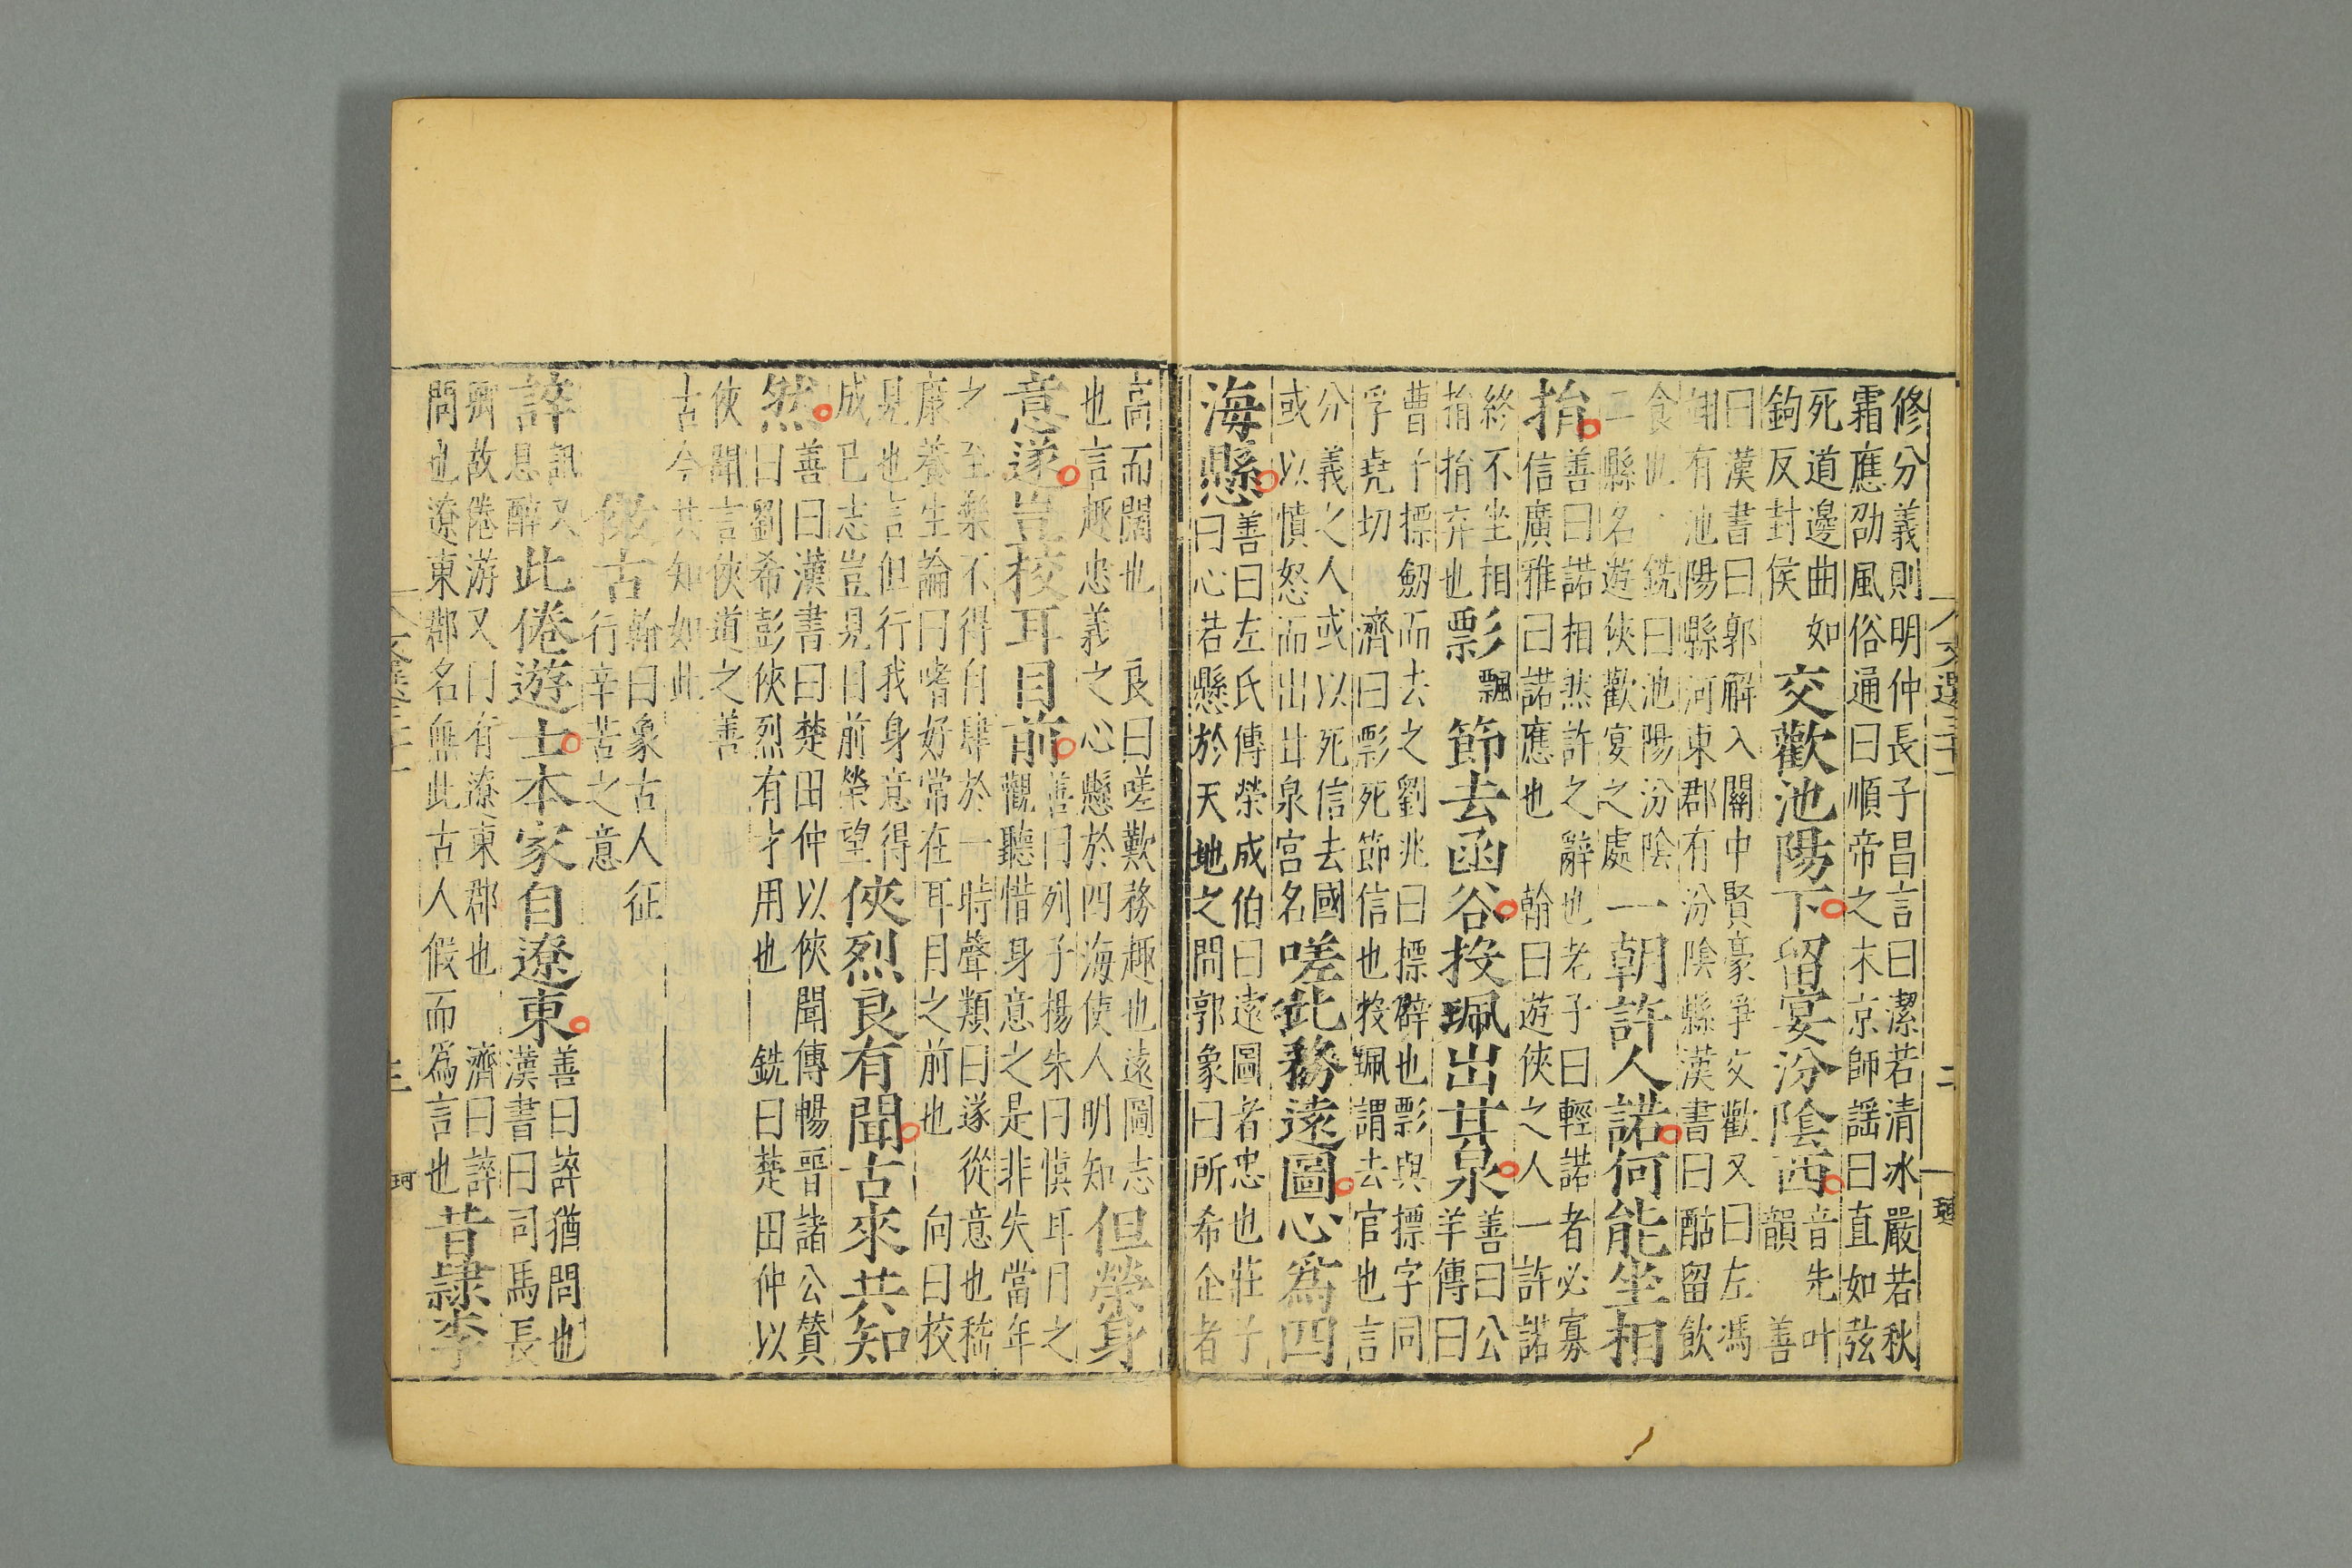 修分義則明仲長子昌言曰潔若清冰嚴若秋
霜應劭風俗通曰順帝之末京師謡曰直如弦
死道邊曲如
鉤反封侯
交歡池陽下留宴汾陰西
音先叶
韻 善
曰漢書曰郭解入關中賢豪爭交歡又曰左馮
翊有池陽縣河東郡有汾陰縣漢書曰酤留飲
食也 銑曰池陽汾陰
二縣名遊俠歡宴之處
一朝許人諾何能坐相
捐
善曰諾相然許之辭也老子曰輕諾者必寡
信廣雅曰諾應也 翰曰遊俠之人一許諾
終不坐相
捐捐弃也
彯
飄
節去函谷投珮出甘泉
善曰公
羊傳曰
曹子摽劒而去之劉兆曰摽辟也彯與摽字同
孚堯切 濟曰彯死節信也投珮謂去官也言
分義之人或以死信去國
或以憤怒而出甘泉宮名
嗟此務遠圖心爲四
海懸
善曰左氏傳榮成伯曰遠圖者忠也莊子
曰心若懸於天地之間郭象曰所希企者
文選三十一
二
高而闊也 良曰嗟歎務趣也遠圖志
也言趣忠義之心懸於四海使人明知
但榮身
意遂豈校耳目前
善曰列子楊朱曰慎耳目之
觀聽惜身意之是非失當年
之至樂不得自肆於一時聲類曰遂從意也嵇
康養生論曰嗜好常在耳目之前也 向曰校
見也言但行我身意得
成已志豈見目前榮望
俠烈良有聞古來共知
然
善曰漢書曰楚田仲以俠聞傳暢晉諸公贊
曰劉希彭俠烈有才用也 銑曰楚田仲以
俠聞言俠道之善
古今共知如此
傚古
翰曰象古人征
行辛苦之意
誶
訊又
息醉
此倦遊士本家自遼東
善曰誶猶問也
漢書曰司馬長
卿故倦游又曰有遼東郡也 濟曰誶
問也遼東郡名無此古人假而爲言也
昔隷李
三